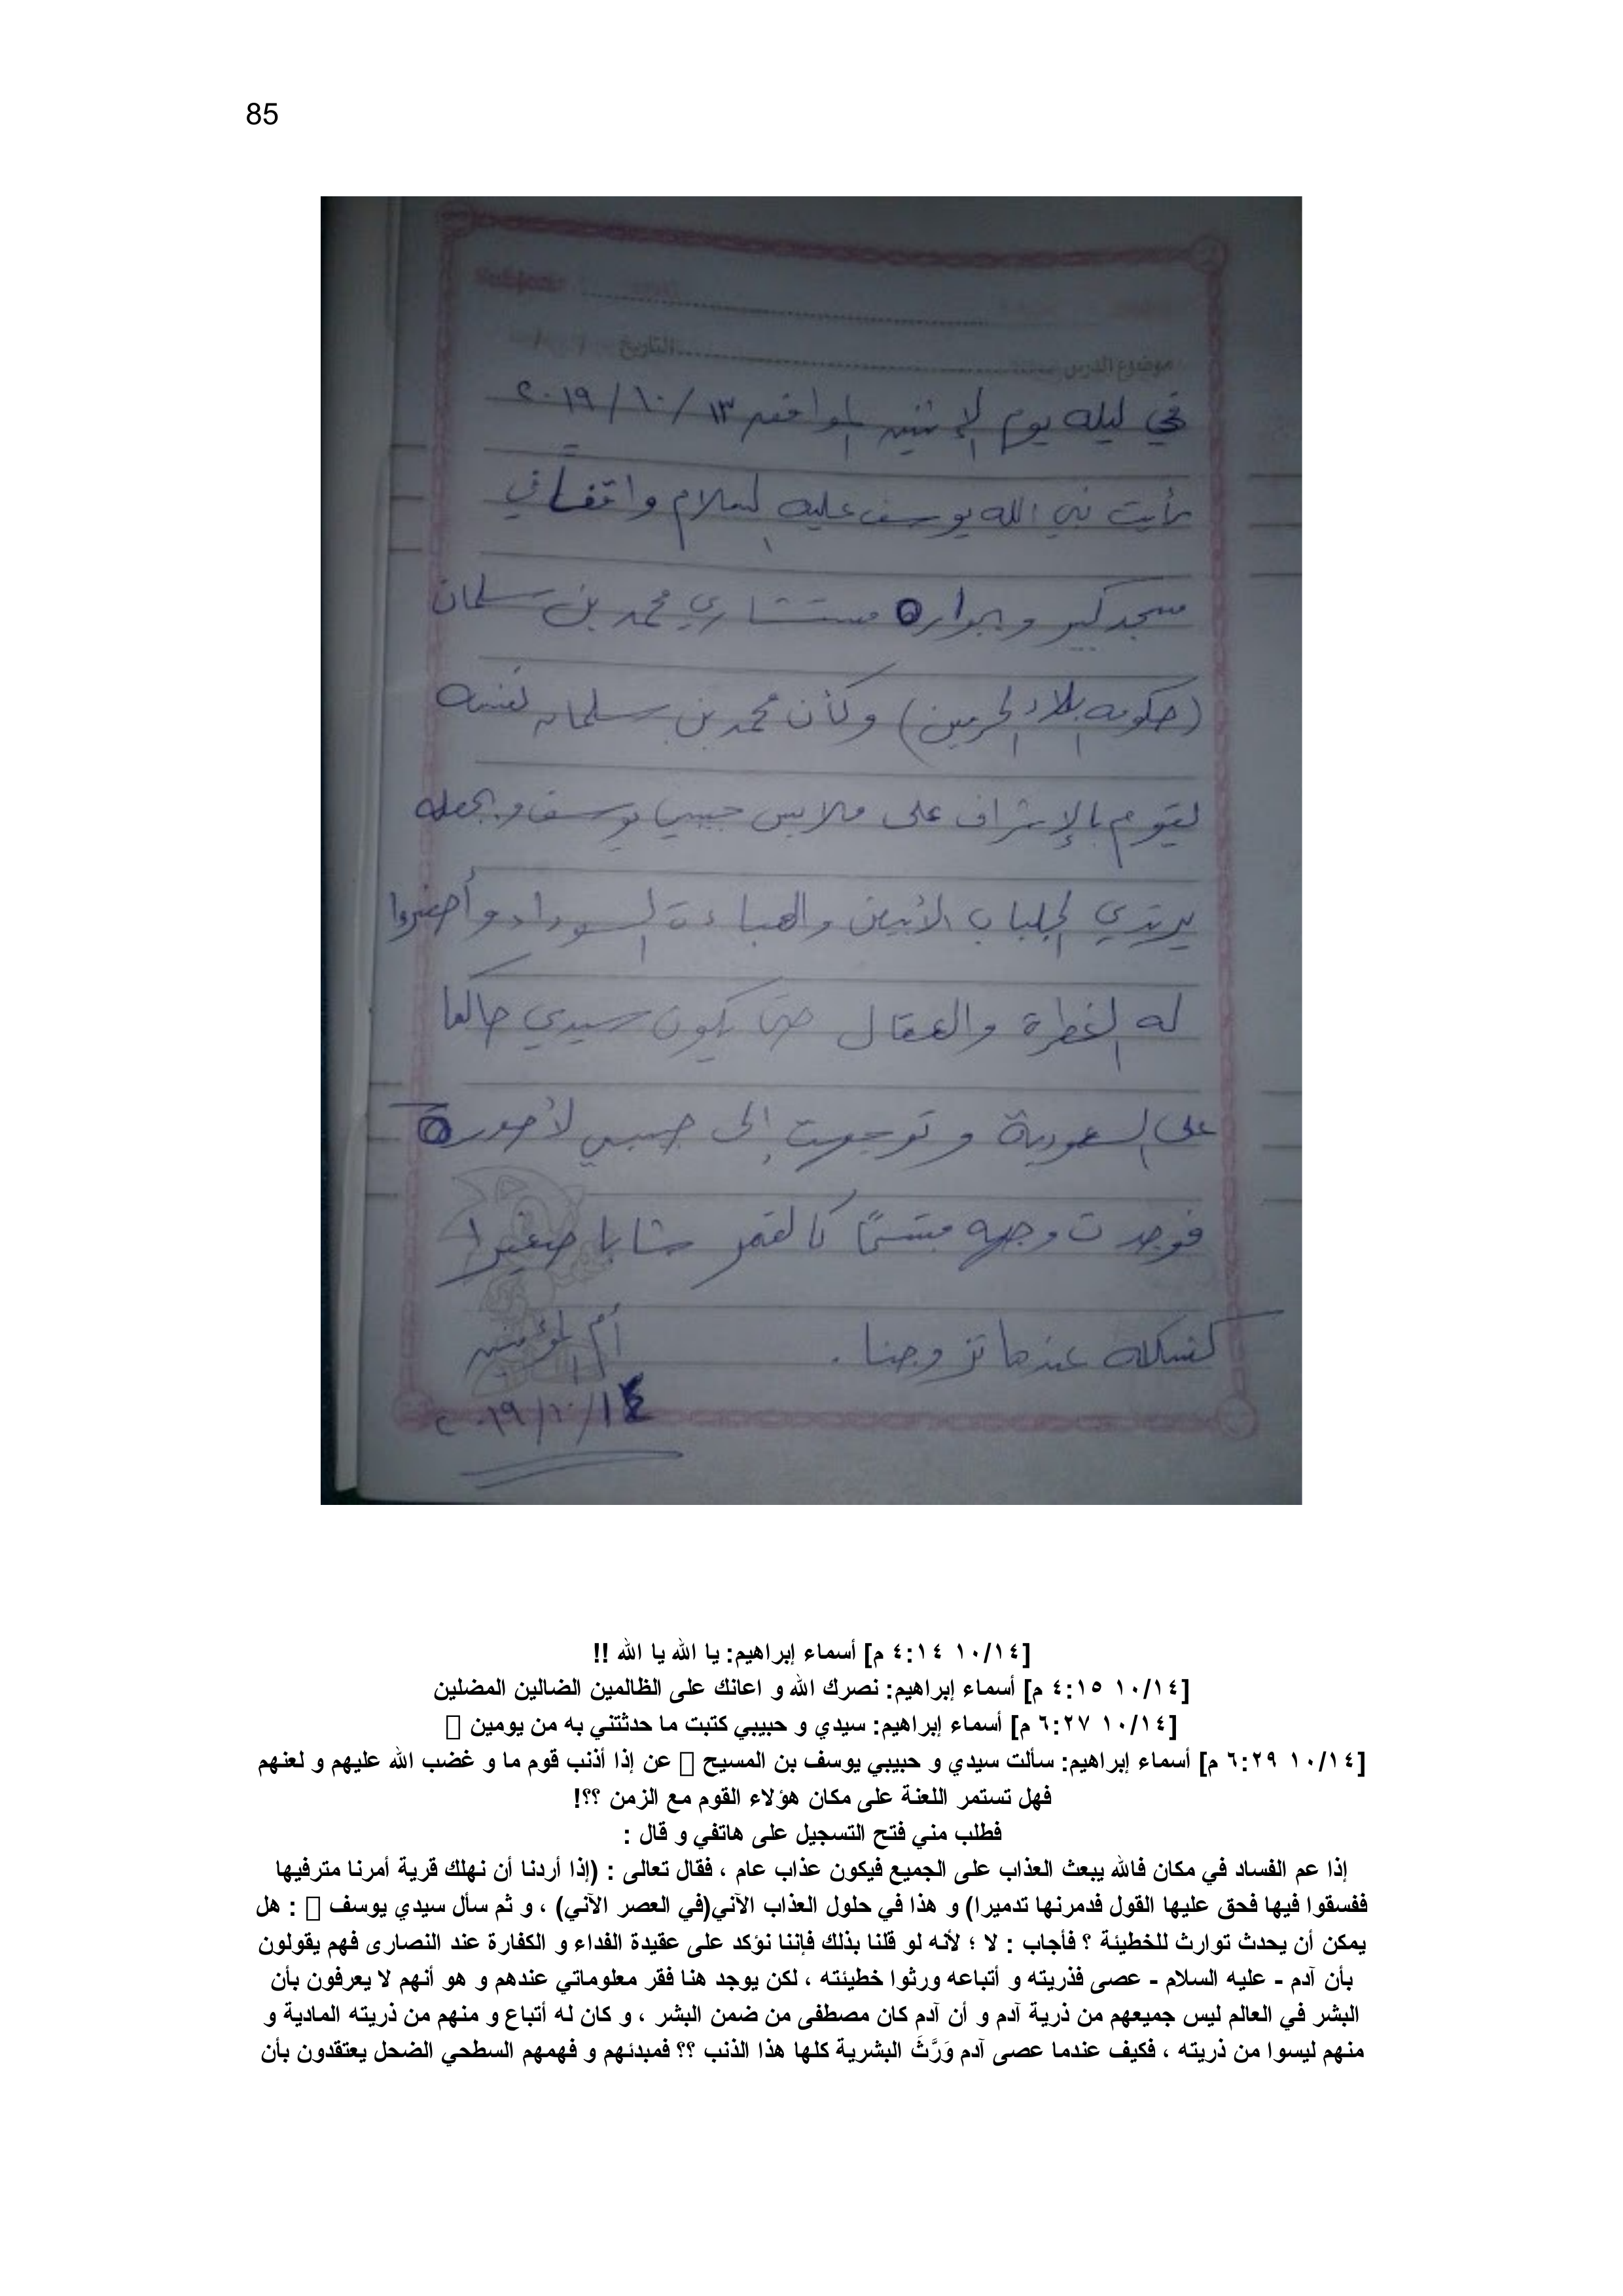 85
موضوع الدرس التاريخ / /
في ليله يوم الإثنين الموافق ١٣ / ١٠ / ٢٠١٩
رأيت نبي الله يوسف عليه السلام واقفاً في
مسجد كبير وبجواره مستشاري محمد بن سلمان
(حكومه بلاد الحرمين) وكأن محمد بن سلمان نفسه
ليقوم بالإشراف على ملابس حبيبي يوسف ويجعله
يرتدي الجلباب الأبيض والعباءة السوداء وأحضروا
له الغطرة والعقال حتى يكون سيدي حاكما
على السعودية وتوجهت إلى حبيبي لأصوره
فوجدت وجهه مبتسمًا كالقمر شابا صغيرا
كشكله عندما تزوجنا . أم المؤمنين
١٤ /١٠/ ٢٠١٩
[١٠/١٤ ٤:١٤ م] أسماء إبراهيم: يا الله يا الله !!
[١٠/١٤ ٤:١٥ م] أسماء إبراهيم: نصرك الله و اعانك على الظالمين الضالين المضلين
[١٠/١٤ ٦:٢٧ م] أسماء إبراهيم: سيدي و حبيبي كتبت ما حدثتني به من يومين
[١٠/١٤ ٦:٢٩ م] أسماء إبراهيم: سألت سيدي و حبيبي يوسف بن المسيح عن إذا أذنب قوم ما و غضب الله عليهم و لعنهم
فهل تستمر اللعنة على مكان هؤلاء القوم مع الزمن ؟؟!
فطلب مني فتح التسجيل على هاتفي و قال :
إذا عم الفساد في مكان فالله يبعث العذاب على الجميع فيكون عذاب عام ، فقال تعالى : (إذا أردنا أن نهلك قرية أمرنا مترفيها
ففسقوا فيها فحق عليها القول فدمرنها تدميرا) و هذا في حلول العذاب الآني(في العصر الآني) ، و ثم سأل سيدي يوسف : هل
يمكن أن يحدث توارث للخطيئة ؟ فأجاب : لا ؛ لأنه لو قلنا بذلك فإننا نؤكد على عقيدة الفداء و الكفارة عند النصارى فهم يقولون
بأن آدم - عليه السلام - عصى فذريته و أتباعه ورثوا خطيئته ، لكن يوجد هنا فقر معلوماتي عندهم و هو أنهم لا يعرفون بأن
البشر في العالم ليس جميعهم من ذرية آدم و أن آدم كان مصطفى من ضمن البشر ، و كان له أتباع و منهم من ذريته المادية و
منهم ليسوا من ذريته ، فكيف عندما عصى آدم وَرَّثَ البشرية كلها هذا الذنب ؟؟ فمبدئهم و فهمهم السطحي الضحل يعتقدون بأن